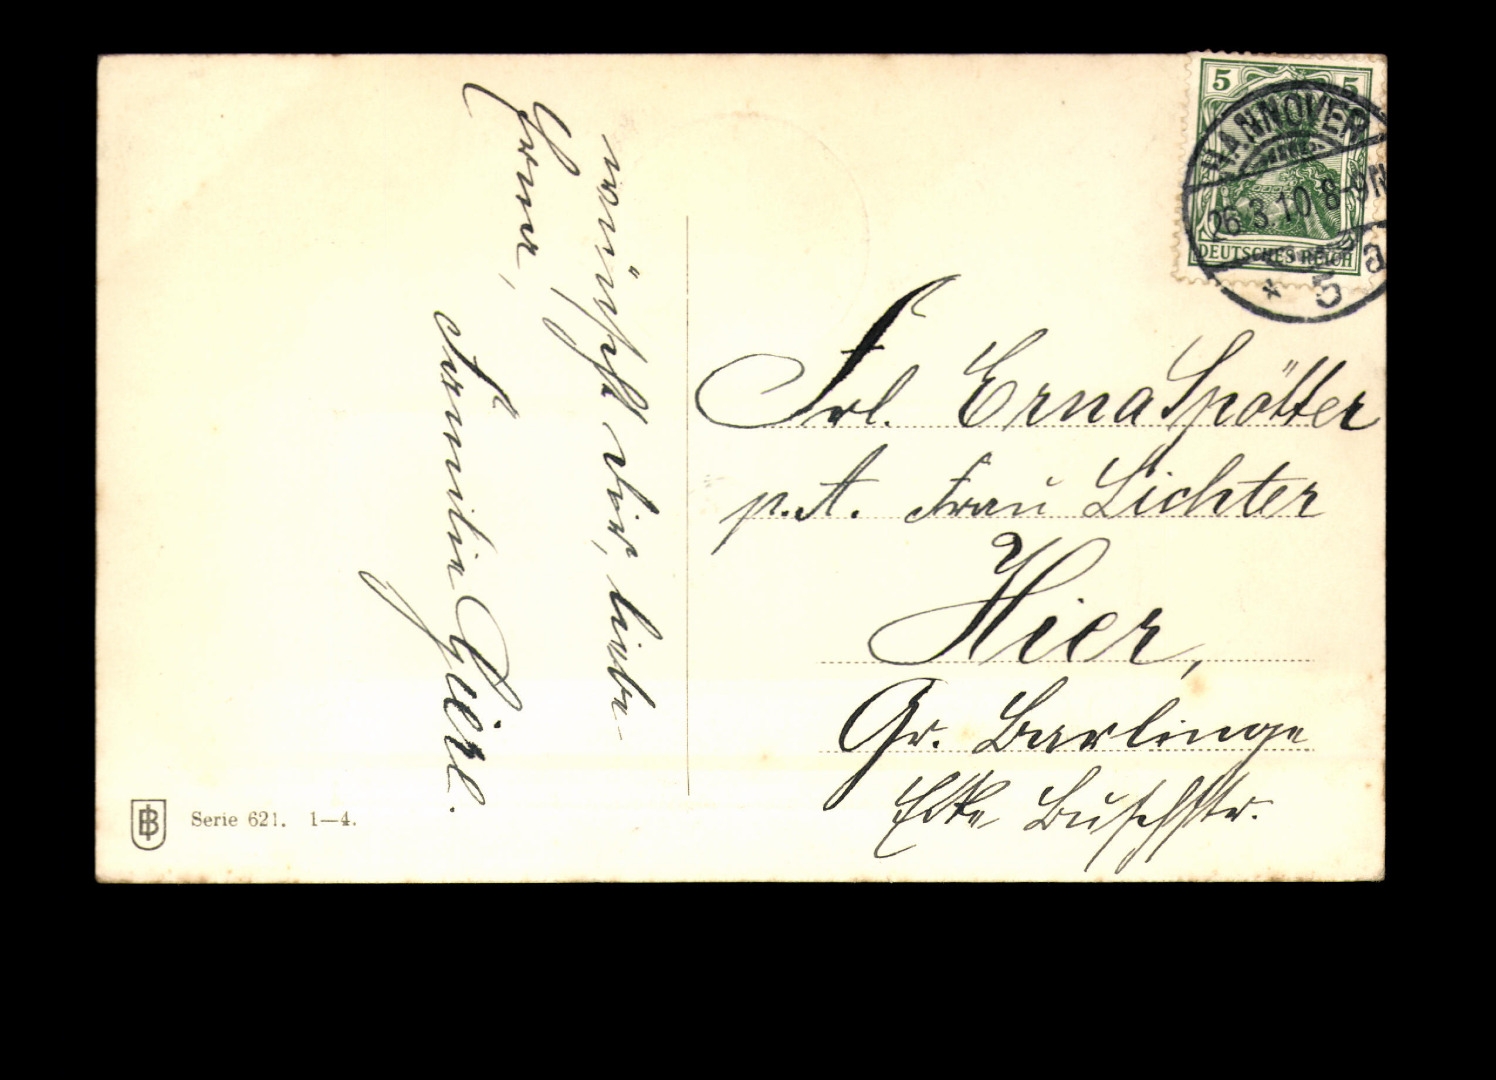 wünscht Dir, liebe
Erna,
Familie Giere.
5 5
HANNOVER
26.3.10.8-9N
* 5 a
DEUTSCHES REICH
Frl. Erna Spötter
p. A. Frau Lichter
Hier,
Gr. Barlinge
Ecke Buschstr.
B Serie 621. 1—4.